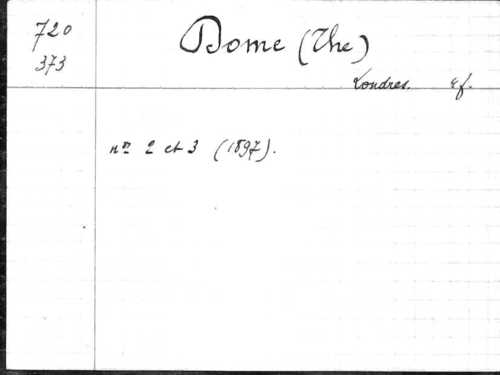 720
373
Dome (The)
Londres. 4f.
nos 2 et 3 (1897).